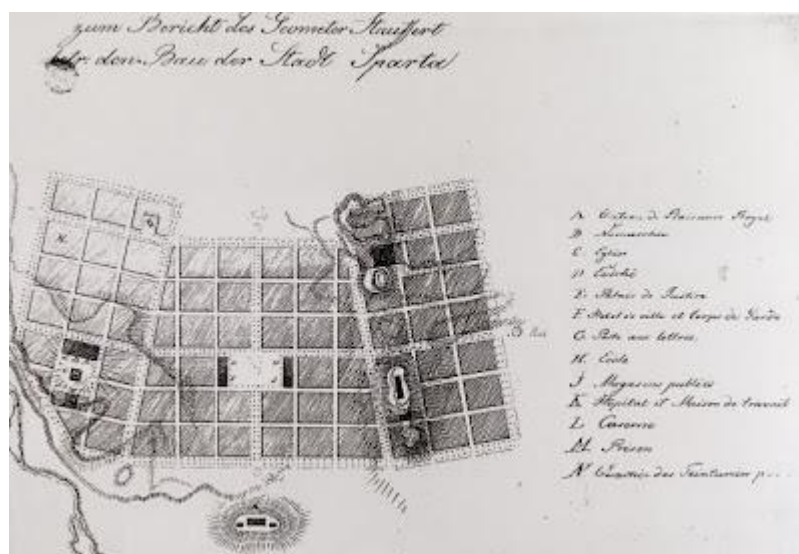 zum Bericht des Geometer Stauffert
den Bau der Stadt Sparta
A
B
C Eglise
D Evêché
E Palais de Justice
F Hotel de ville et Corps de Garde
G Poste aux lettres
H Ecole
J Magasins publics
K Hopital et Maison de travail
L Caserne
M Prison
N Quartier des